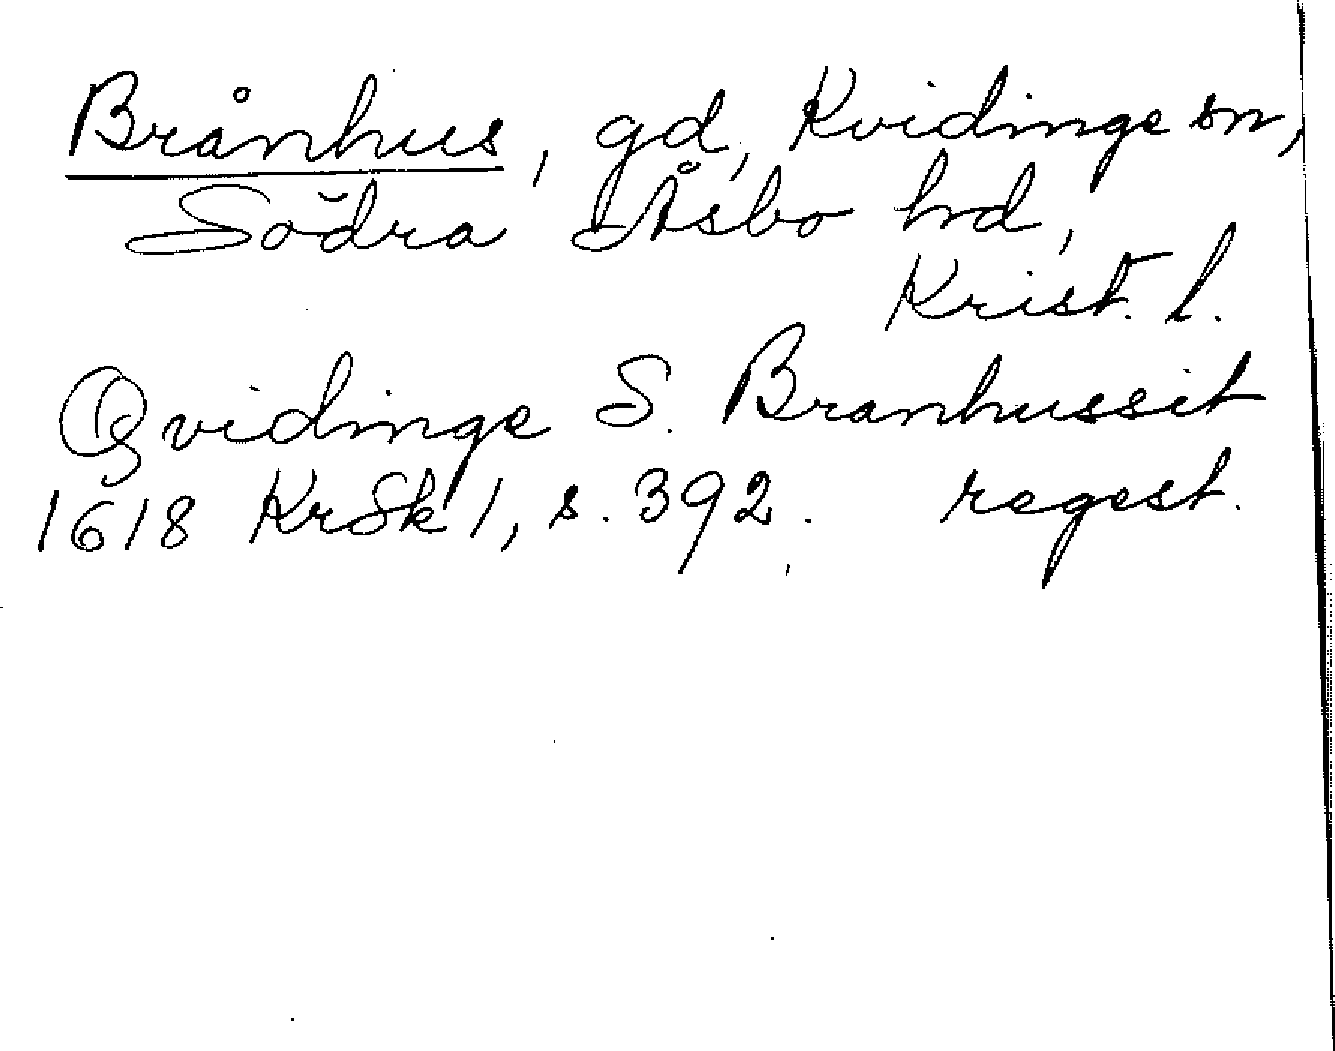 Brånhus, gd, Kvidinge sn,
Södra Åsbo hd,
Krist. l.
Qvidinge S. Branhussit
1618 KrSk 1, s. 392. regest.